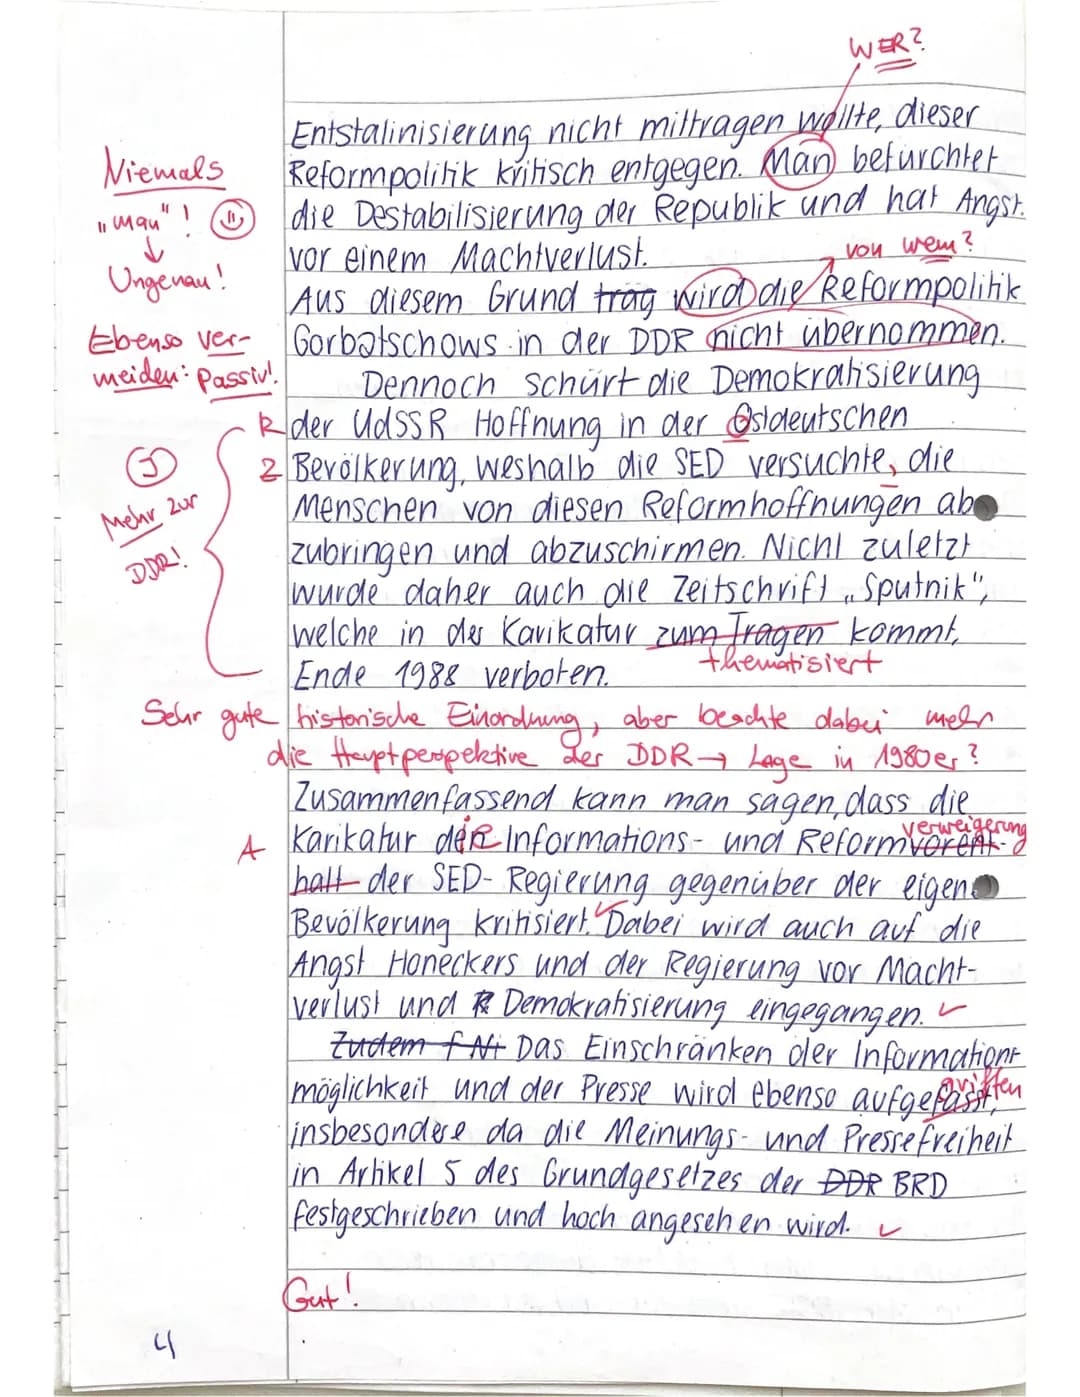 WER?
Entstalinisierung nicht mittragen wollte, dieser
Reformpolitik kritisch entgegen. Man befürchtet
die Destabilisierung der Republik und hat Angst
vor einem Machtverlust.
Niemals
"man"!
Ungenau!
von wem?
Aus diesem Grund trag wird die Reformpolitik
Gorbatschows in der DDR nicht übernommen.
Ebenso ver-
meiden: Passiv!
Dennoch schürt die Demokratisierung
R der UdSSR Hoffnung in der Ostdeutschen
Z Bevölkerung, weshalb die SED versuchte, die
Menschen von diesen Reformhoffnungen ab
zubringen und abzuschirmen. Nicht zuletzt
wurde daher auch die Zeitschrift „Sputnik",
welche in der Karikatur zum Tragen kommt,
thematisiert
Ende 1988 verboten.
Mehr zur
DDR!
Sehr gute historische Einordnung, aber beachte dabei mehr
die Hauptperspektive der DDR → Lage in 1980er?
Zusammenfassend kann man sagen, dass die
A Karikatur die Informations- und Reformvorent-
verweigerung
halt der SED-Regierung gegenüber der eigen
Bevölkerung kritisiert. Dabei wird auch auf die
Angst Honeckers und der Regierung vor Macht-
verlust und R Demokratisierung eingegangen.
Zudem f Ni Das Einschränken der Informations
möglichkeit und der Presse wird ebenso aufgefasst,
griffen
insbesondere da die Meinungs- und Pressefreiheit
in Artikel 5 des Grundgesetzes der DDR BRD
festgeschrieben und hoch angesehen wird.
Gut!
4